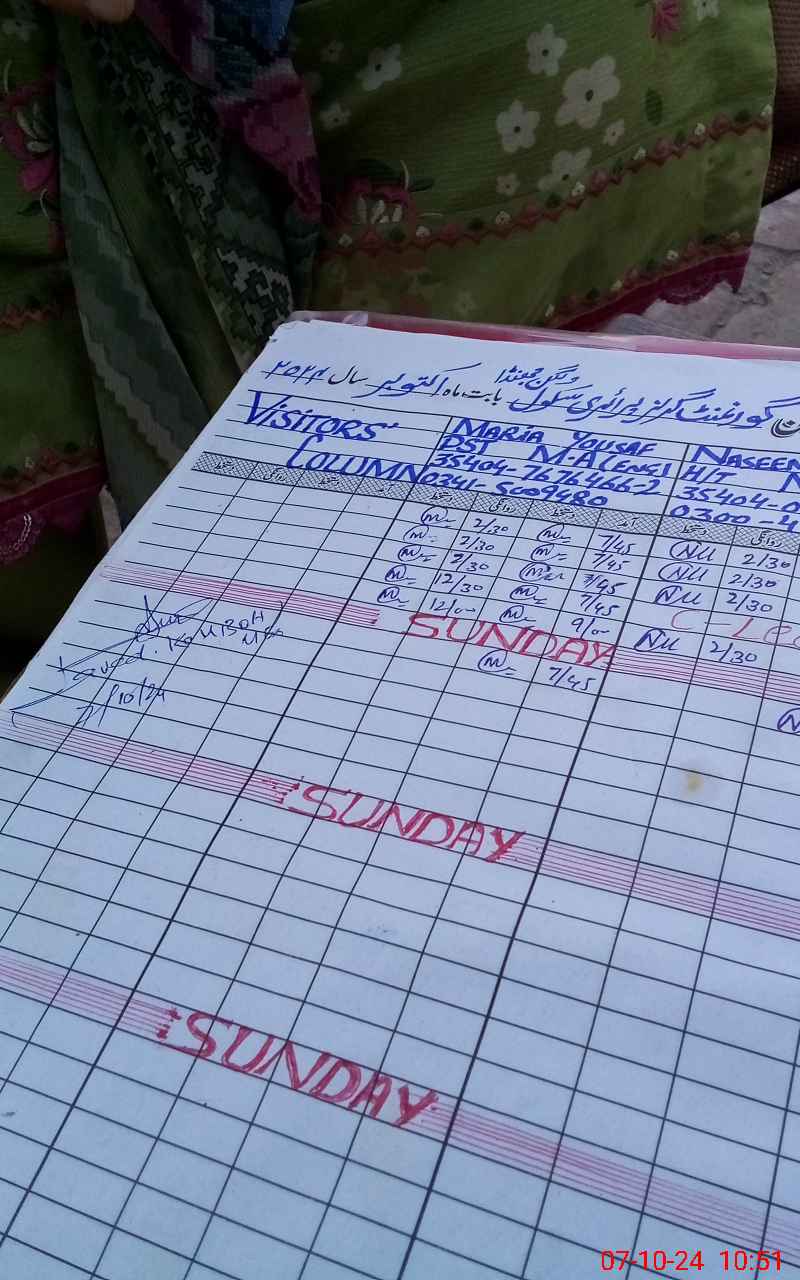 گورنمنٹ گرلز پرائمری سکول
بابت ماہ اکتوبر سال ۲۰۲۴
VISITORS' COLUMN
MARIA YOUSAF
PST M.A(ENG)
35404-7676466-2
0341-5009480
NASEEN
H/T
35404-0
0300-4
دستخط روانگی دستخط آمد دستخط روانگی
2/30 7/45 NU 2/30
2/30 7/45 NU 2/30
2/30 7/45 NU 2/30
12/30 7/45 C-Lea
12/00 9/00 NU 2/30
SUNDAY
7/45
7/10/24
SUNDAY
SUNDAY
07-10-24 10:51